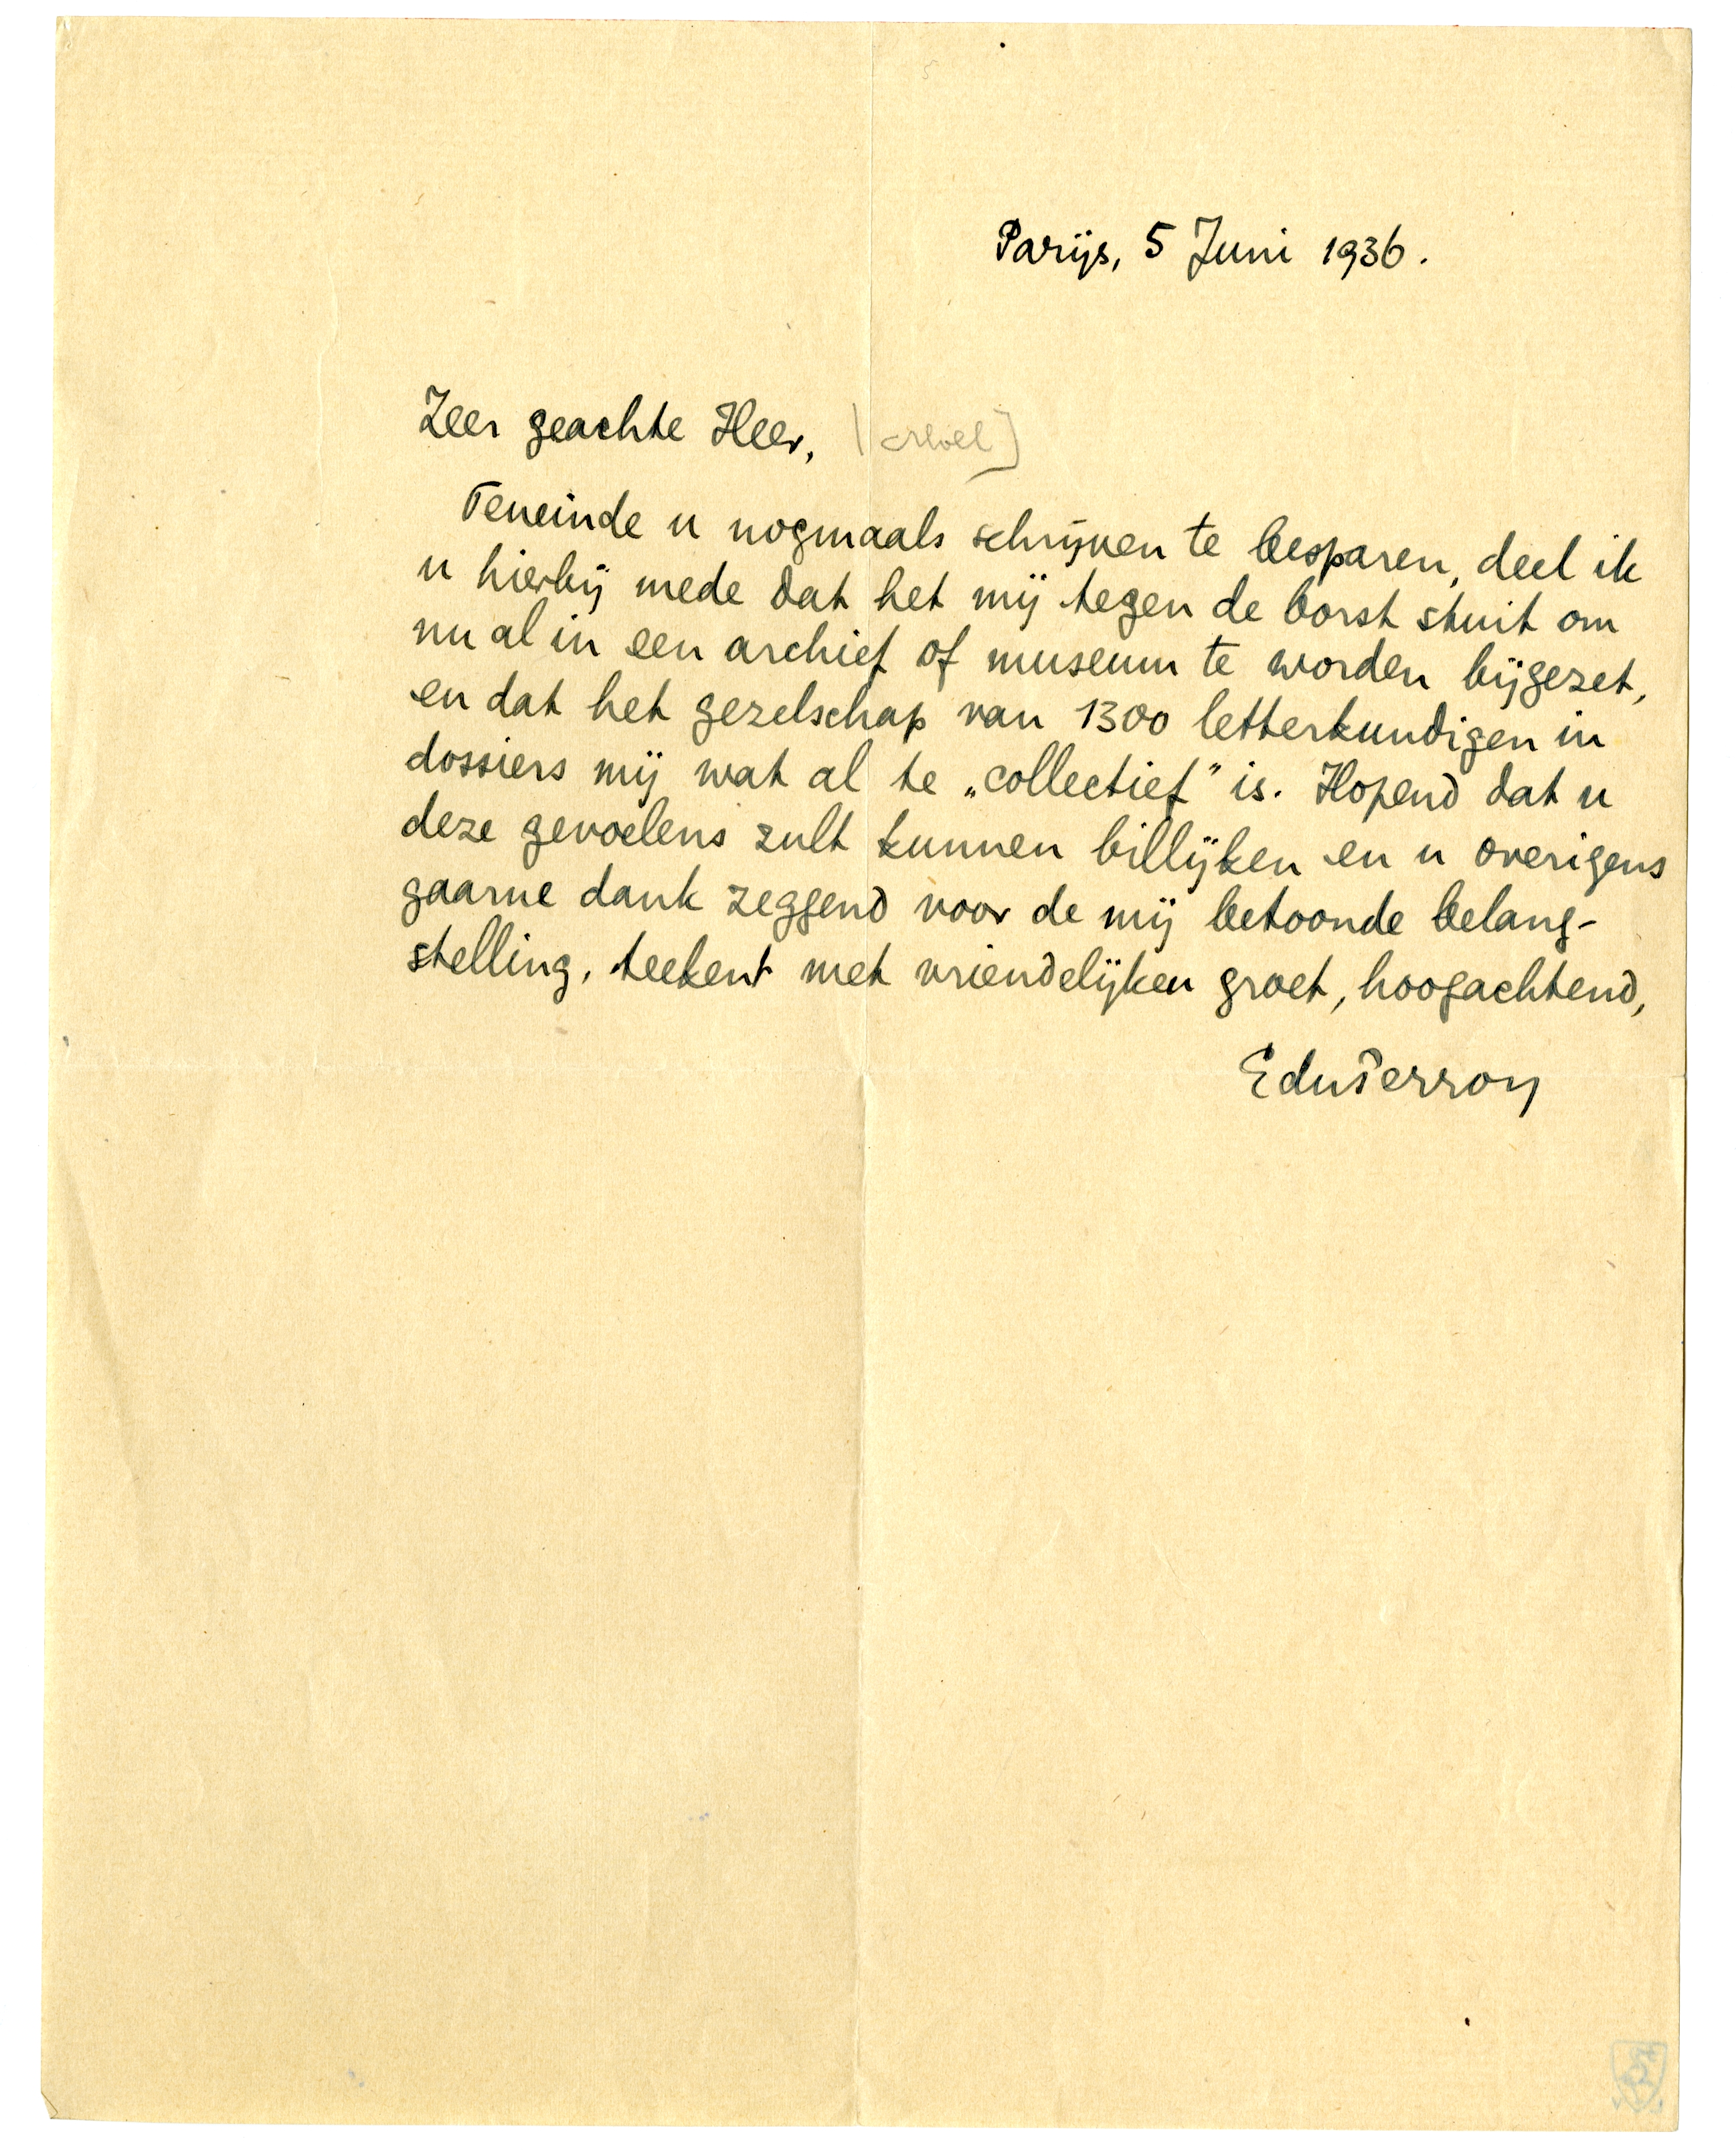 Parijs, 5 Juni 1936.
Zeer geachte Heer,
Teneinde u nogmaals schrijven te besparen, deel ik
u hierbij mede dat het mij tegen de borst stuit om
nu al in een archief of museum te worden bijgezet,
en dat het gezelschap van 1300 letterkundigen in
dossiers mij wat al te „collectief” is. Hopend dat u
deze gevoelens zult kunnen billijken en u overigens
gaarne dank zeggend voor de mij betoonde belang-
stelling, teekent met vriendelijken groet, hoogachtend,
EduPerron